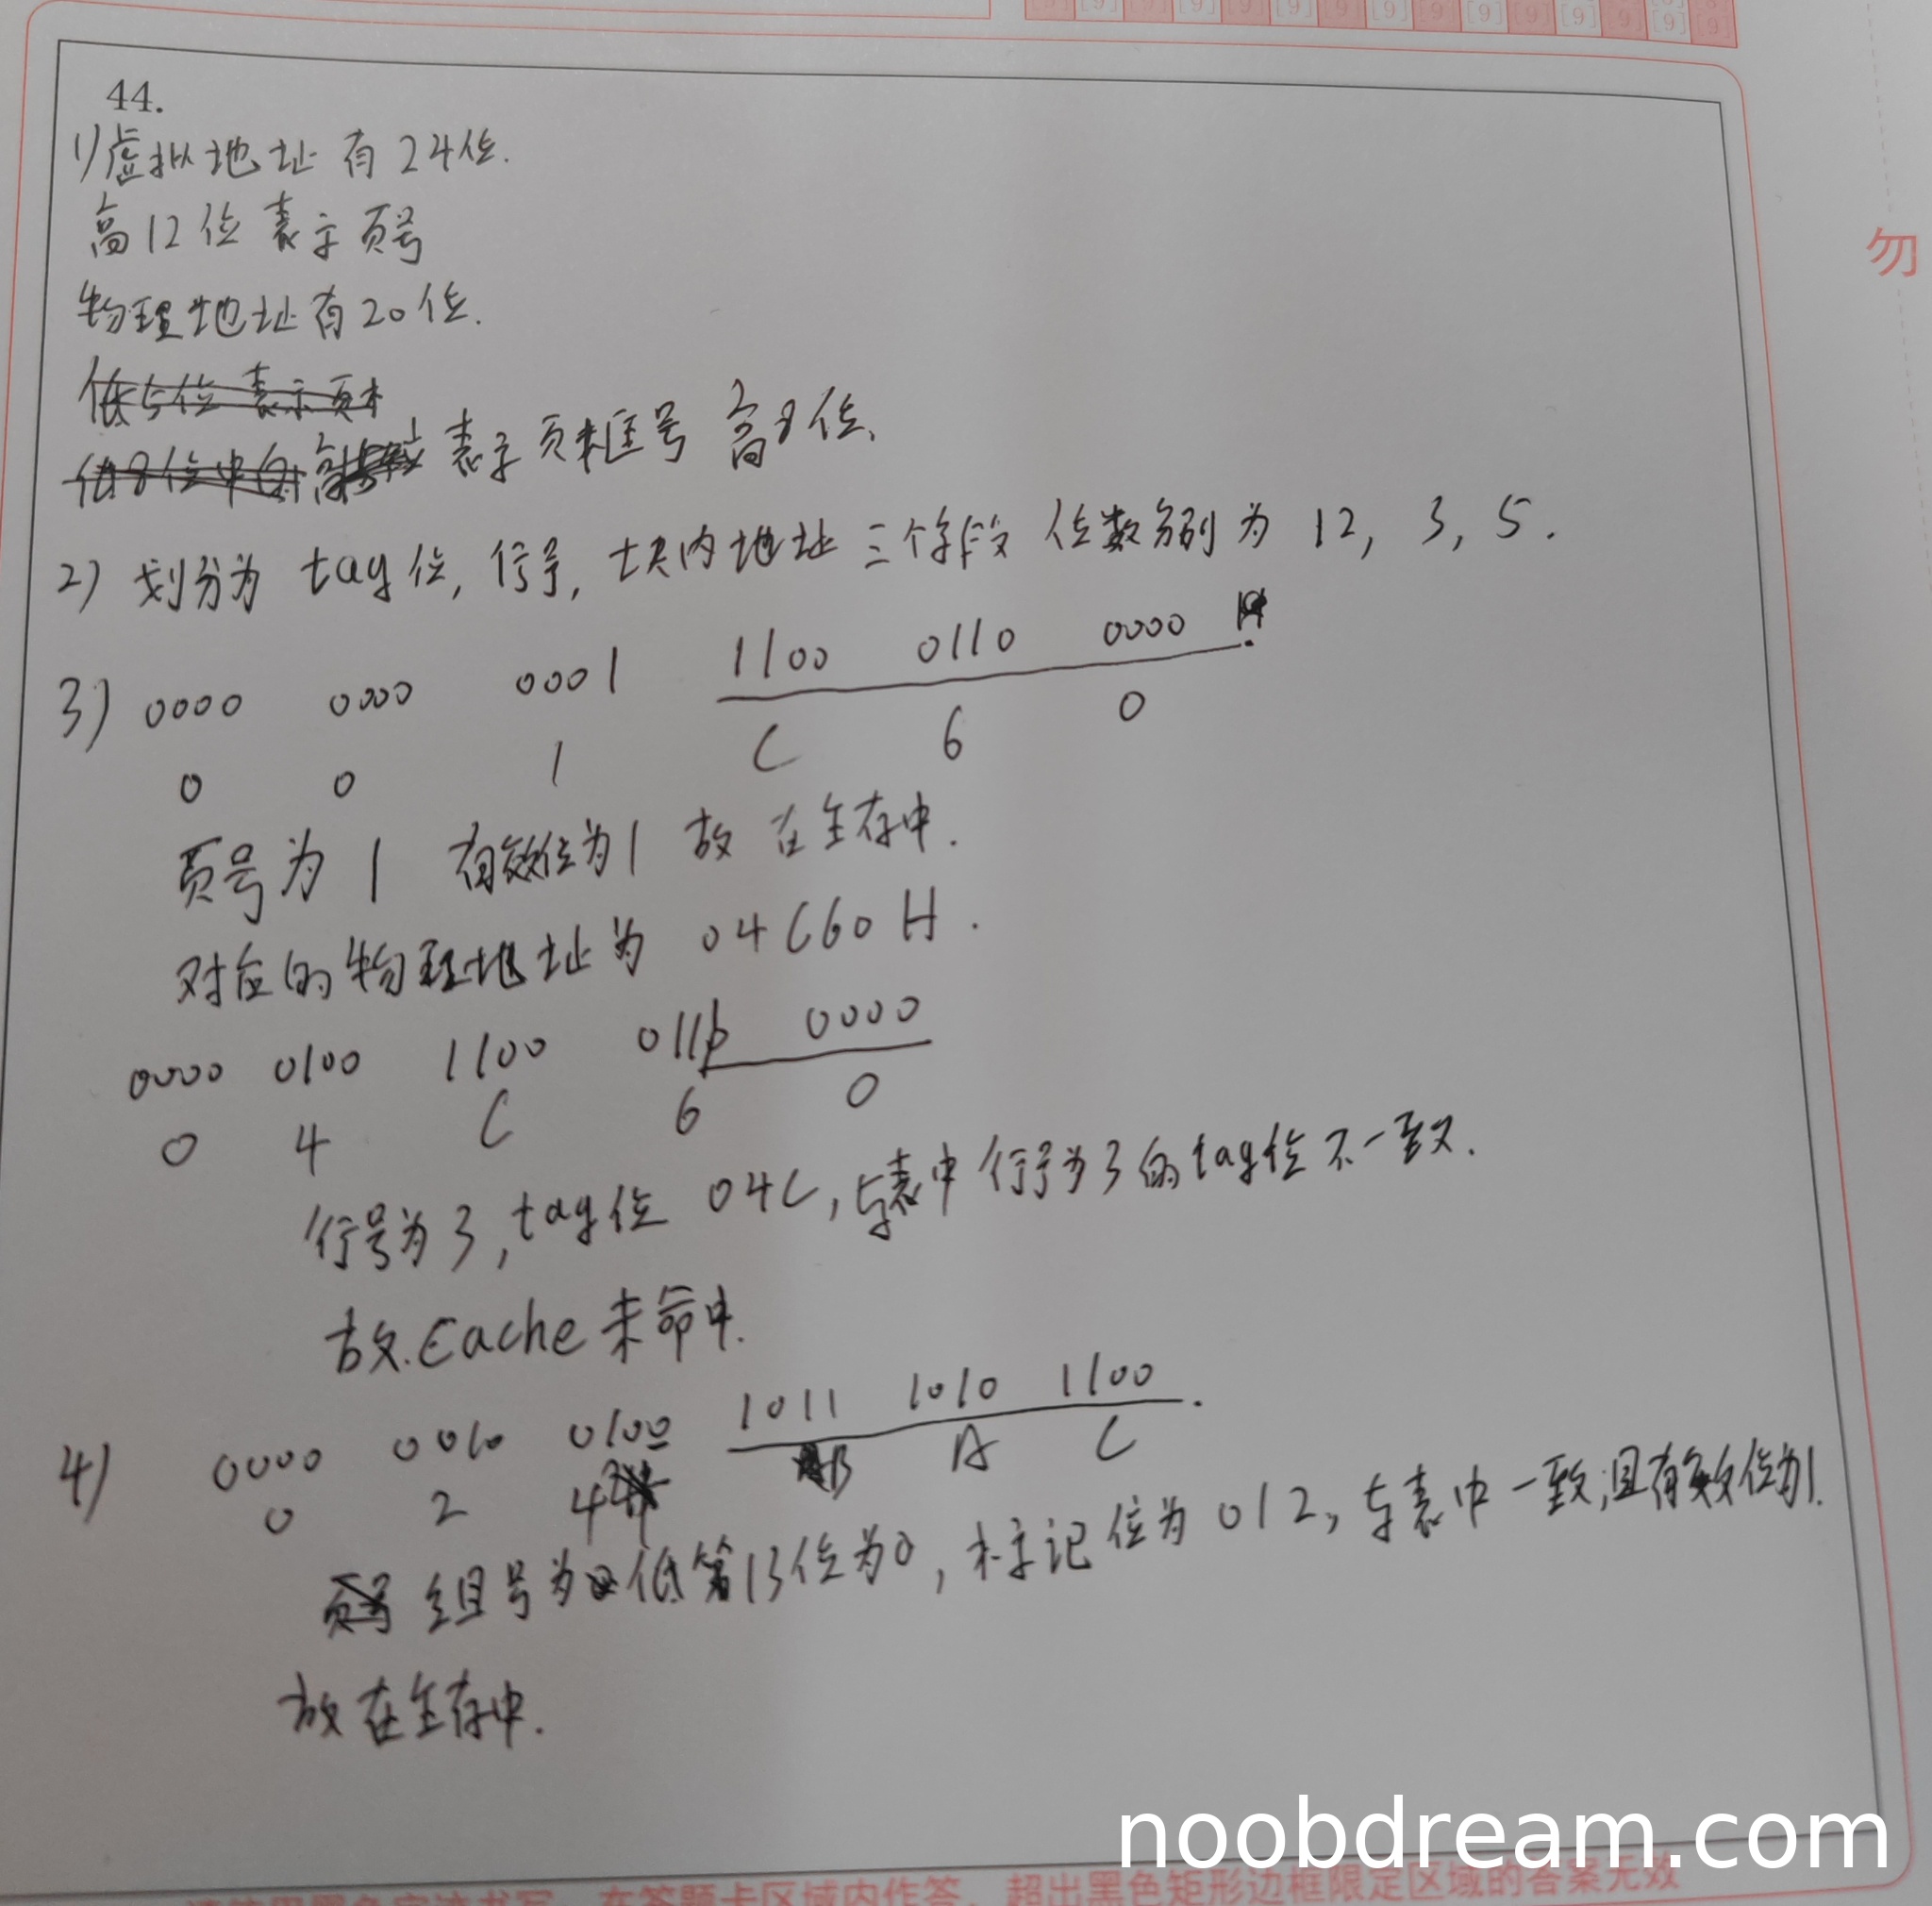 44.
1)虚拟地址有24位.
高12位表示页号
物理地址有20位.
低5位表示页
表示页框号 高8位.
2) 划分为 tag位, 行号, 块内地址三个字段 位数分别为 12, 3, 5.
3) 0000 0000 0001 1100 0110 0000
0 0 1 C 6 0
页号为1 有效位为1 故在主存中.
对应的物理地址为 04C60H.
0000 0100 1100 0110 0000
0 4 C 6 0
行号为3, tag位 04C, 与表中行号为3的tag位不一致.
故.Cache未命中.
4) 0000 0010 0100 1011 1010 1100.
0 2 4 B A C
组号为低第13位为0, 标记位为012, 与表中一致,且有效位为1.
故在主存中.
noobdream.com
在答题卡区域内作答，超出黑色矩形边框限定区域的答案无效
勿